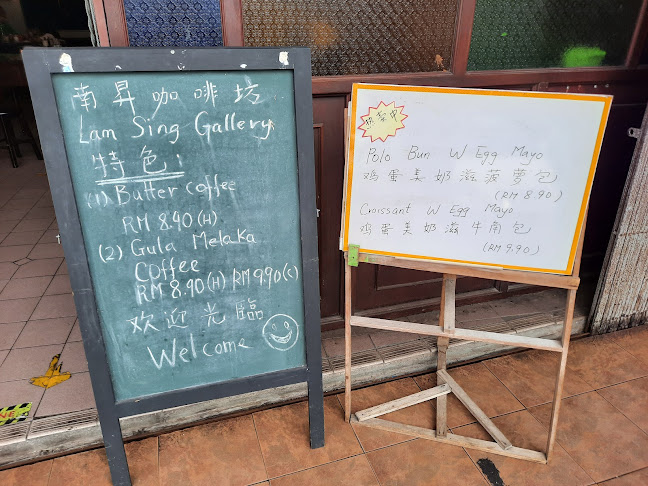 南昇咖啡坊
Lam Sing Gallery
特色:
(1) Butter coffee
RM 8.40 (H)
(2) Gula Melaka
Coffee
RM 8.90 (H) RM 9.90 (C)
欢迎光臨
Welcome
Polo Bun W Egg Mayo
鸡蛋美奶滋菠萝包
(RM 8.90)
Croissant W Egg Mayo
鸡蛋美奶滋牛角包
(RM 9.90)